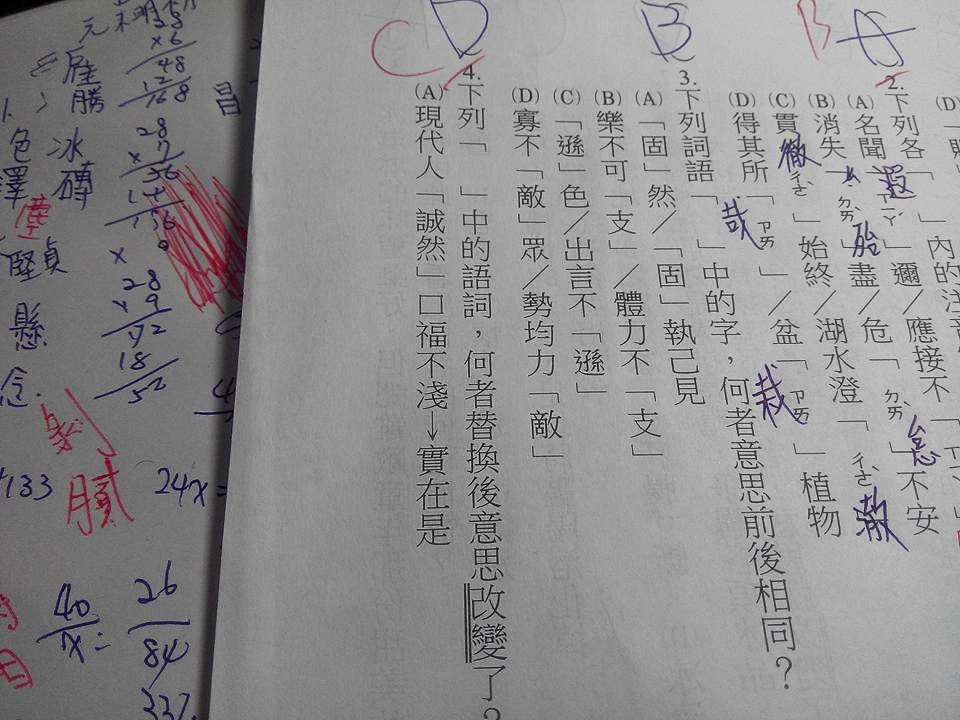 B A
2. 下列各「 」內的注音
(A) 名聞「ㄒㄧㄚˊ 遐」邇/應接不「ㄒㄧㄚˊ
(B) 消失「ㄉㄞˋ 殆」盡/危「ㄉㄞˋ 怠」不安
(C) 貫「ㄔㄜˋ 徹」始終/湖水澄「ㄔㄜˋ 澈
(D) 得其所「ㄗㄞ 哉」/盆「ㄗㄞ 栽」植物
B
3. 下列詞語「 」中的字,何者意思前後相同?
(A) 「固」然/「固」執己見
(B) 樂不可「支」/體力不「支」
(C) 「遜」色/出言不「遜」
(D) 寡不「敵」眾/勢均力「敵」
C D
4. 下列「 」中的語詞,何者替換後意思改變了?
(A) 現代人「誠然」口福不淺→實在是
x6
48
12
168
雁
勝
昌
冰
磚
色
澤
塵
堅貞
懸
念
28
x
156
x
28
9
18
膩
133
24x=
40
x =
26
84
337